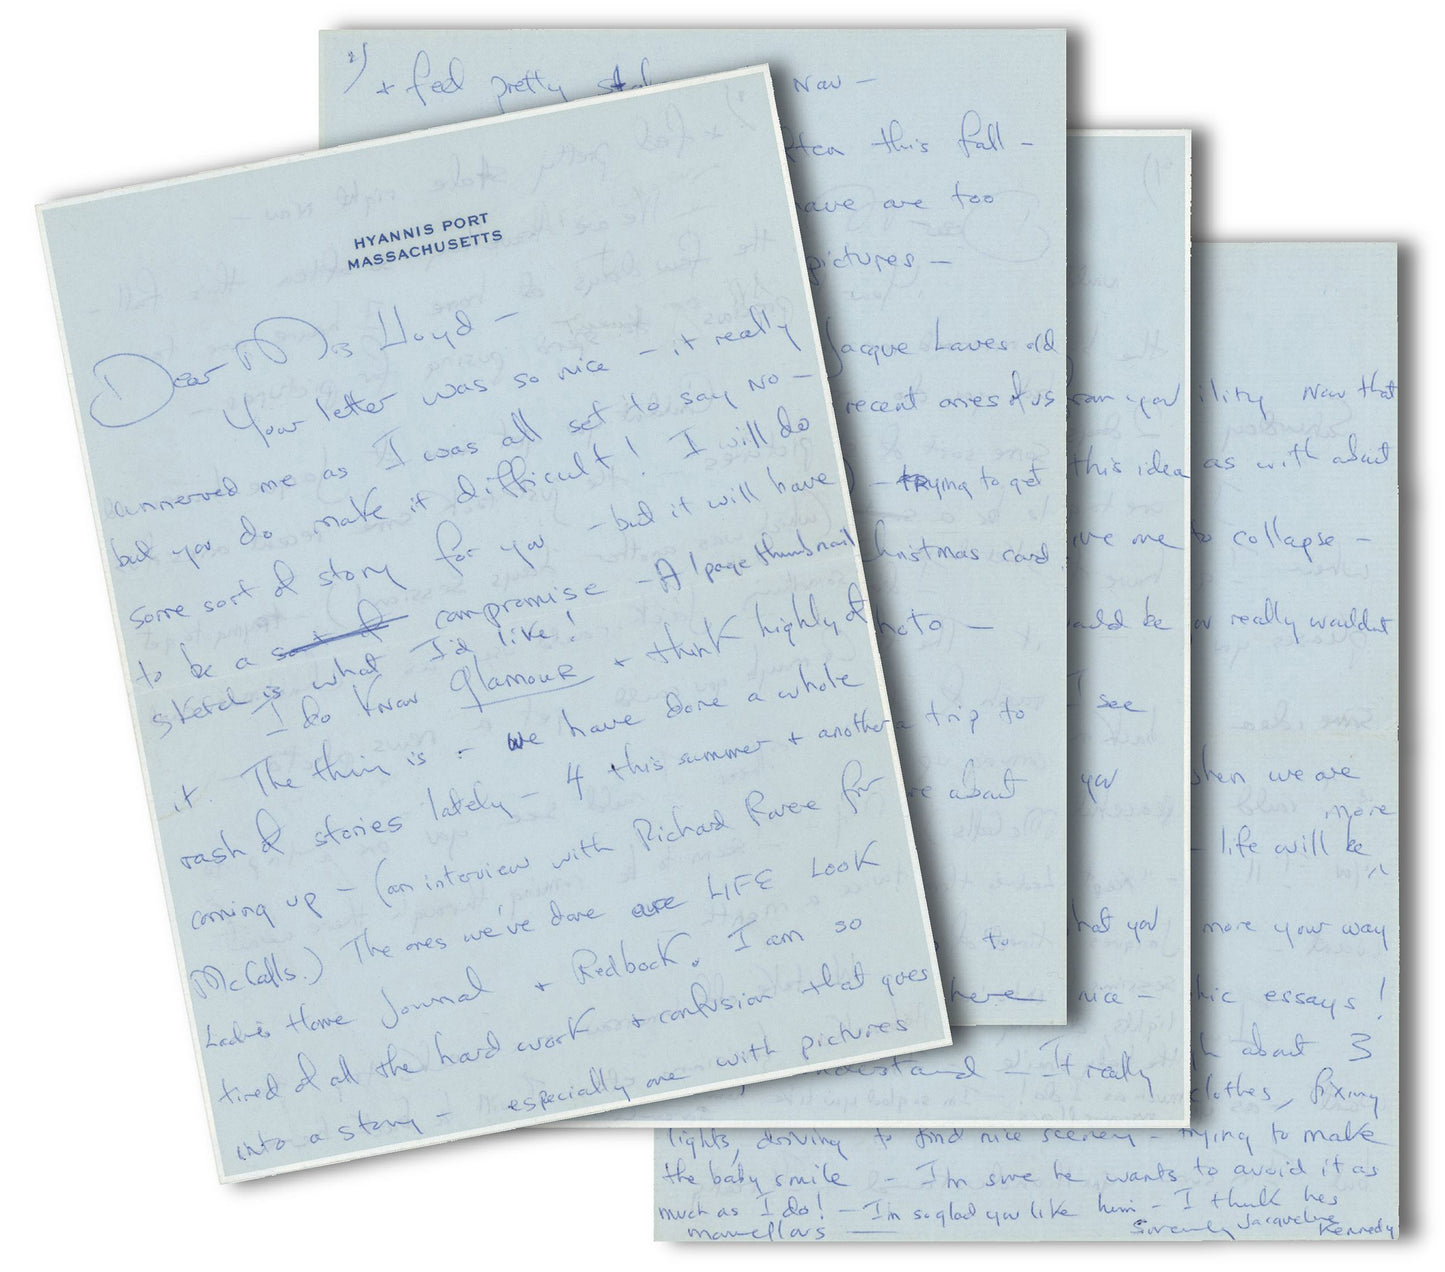 HYANNIS PORT
MASSACHUSETTS
Dear Mrs Lloyd –
Your letter was so nice – it really
unnerved me as I was all set to say no –
but you do make it difficult! I will do
some sort of story for you – but it will have
to be a compromise – A 1 page thumbnail
sketch is what I'd like!
I do know Glamour + think highly of
it. The thing is – we have done a whole
rash of stories lately – 4 this summer + another
coming up – (an interview with Richard Rovere for
McCalls.) The ones we've done are LIFE LOOK
Ladies Home Journal + Redbook. I am so
tired of all the hard work + confusion that goes
into a story – especially one with pictures
2) + feel pretty now –
this fall –
have are too
pictures –
Jacque Lowes old
recent ones of us
) – trying to get
Christmas card
photo –
a trip to
about
to
here
you
this idea
give me
would be
I see
you
that you
nice –
understand – It really
ility now that
as with about
to collapse –
really wouldnt
when we are
more
– life will be
more your way
essays!
about 3
clothes, fixing
lights, driving to find nice scenery – trying to make
the baby smile – I'm sure he wants to avoid it as
much as I do! – I'm so glad you like him – I think hes
marvellous —
Sincerely Jacqueline
Kennedy